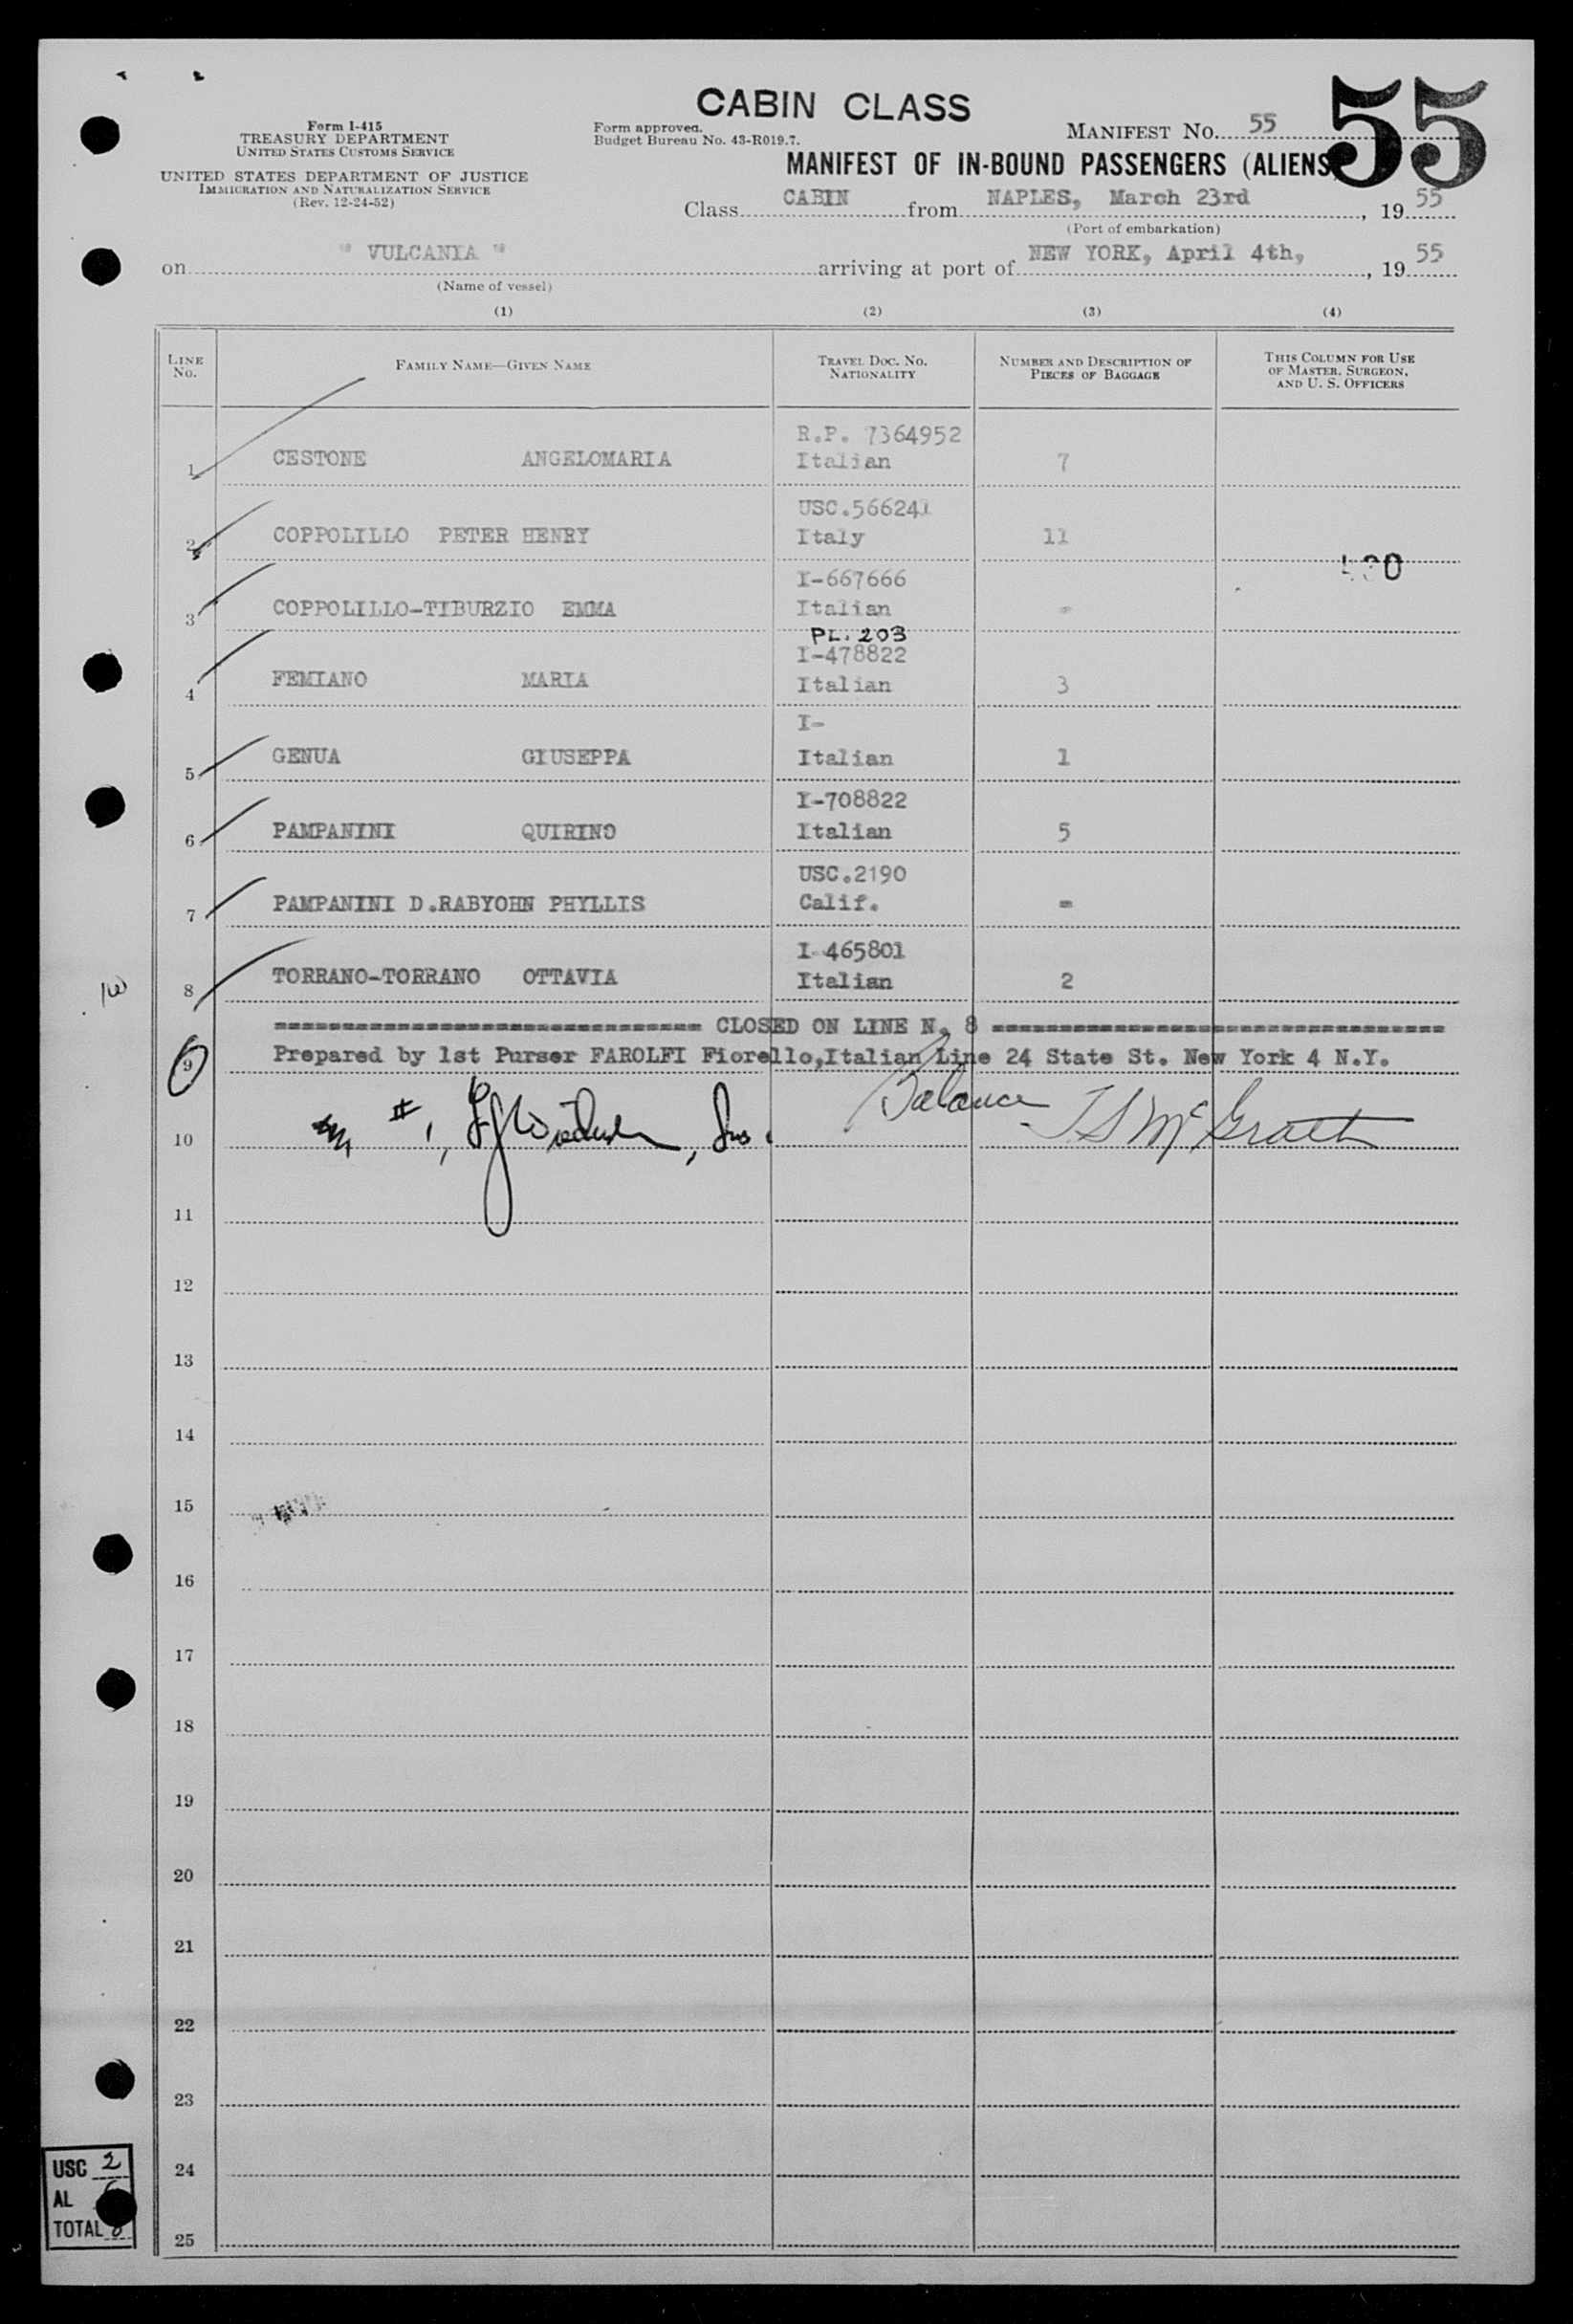 CABIN CLASS
55
Form I-415
TREASURY DEPARTMENT
UNITED STATES CUSTOMS SERVICE
UNITED STATES DEPARTMENT OF JUSTICE
IMMIGRATION AND NATURALIZATION SERVICE
(Rev. 12-24-52)
Form approved.
Budget Bureau No. 43-R019.7.
MANIFEST NO. 55
MANIFEST OF IN-BOUND PASSENGERS (ALIENS
Class CABIN from NAPLES, March 23rd, 19 55
(Port of embarkation)
on " VULCANIA " arriving at port of NEW YORK, April 4th, , 19 55
(Name of vessel)
(1) (2) (3) (4)
LINE NO. FAMILY NAME—GIVEN NAME TRAVEL DOC. NO. NATIONALITY NUMBER AND DESCRIPTION OF PIECES OF BAGGAGE THIS COLUMN FOR USE OF MASTER, SURGEON, AND U. S. OFFICERS
R.P. 7364952
1 CESTONE ANGELOMARIA Italian 7
USC.566241
2 COPPOLILLO PETER HENRY Italy 11
I-667666
3 COPPOLILLO-TIBURZIO EMMA Italian -
PL. 203
I-478822
4 FEMIANO MARIA Italian 3
I-
5 GENUA GIUSEPPA Italian 1
I-708822
6 PAMPANINI QUIRINO Italian 5
USC.2190
7 PAMPANINI D.RABYOHN PHYLLIS Calif. =
I-465801
8 TORRANO-TORRANO OTTAVIA Italian 2
=============================== CLOSED ON LINE N. 8 =================================
9 Prepared by 1st Purser FAROLFI Fiorello,Italian Line 24 State St. New York 4 N.Y.
Balance T S McGrath
10
11
12
13
14
15
16
17
18
19
20
21
22
23
24
25
USC 2
AL
TOTAL 8